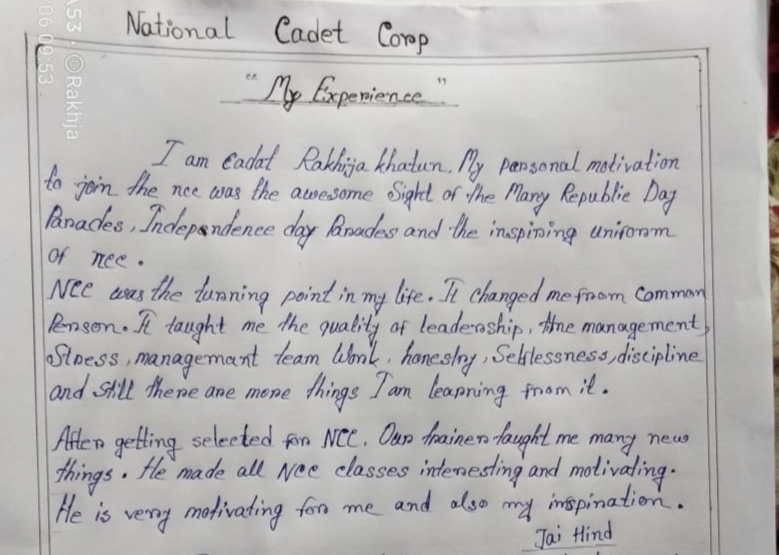 National Cadet Corp
"My Experience"
I am Cadat Rakhija khatun, My parsonal motivation
to join the ncc was the awesome Sight of the Many Republic Day
Parades, Independence day Parades and the inspiring uniform
of ncc.
NCC was the tunning point in my life. It changed me from Common
Person. It taught me the quality of leadership, time management,
Stress, managemant team Work, honestry, Selflessness, discipline
and still there are more things I am learning from it.
After getting selected for NCC. Our trainer taught me many new
things. He made all Ncc classes interesting and motivating.
He is very motivating for me and also my inspiration.
Jai Hind
A53 · ©Rakhja
06 09:53